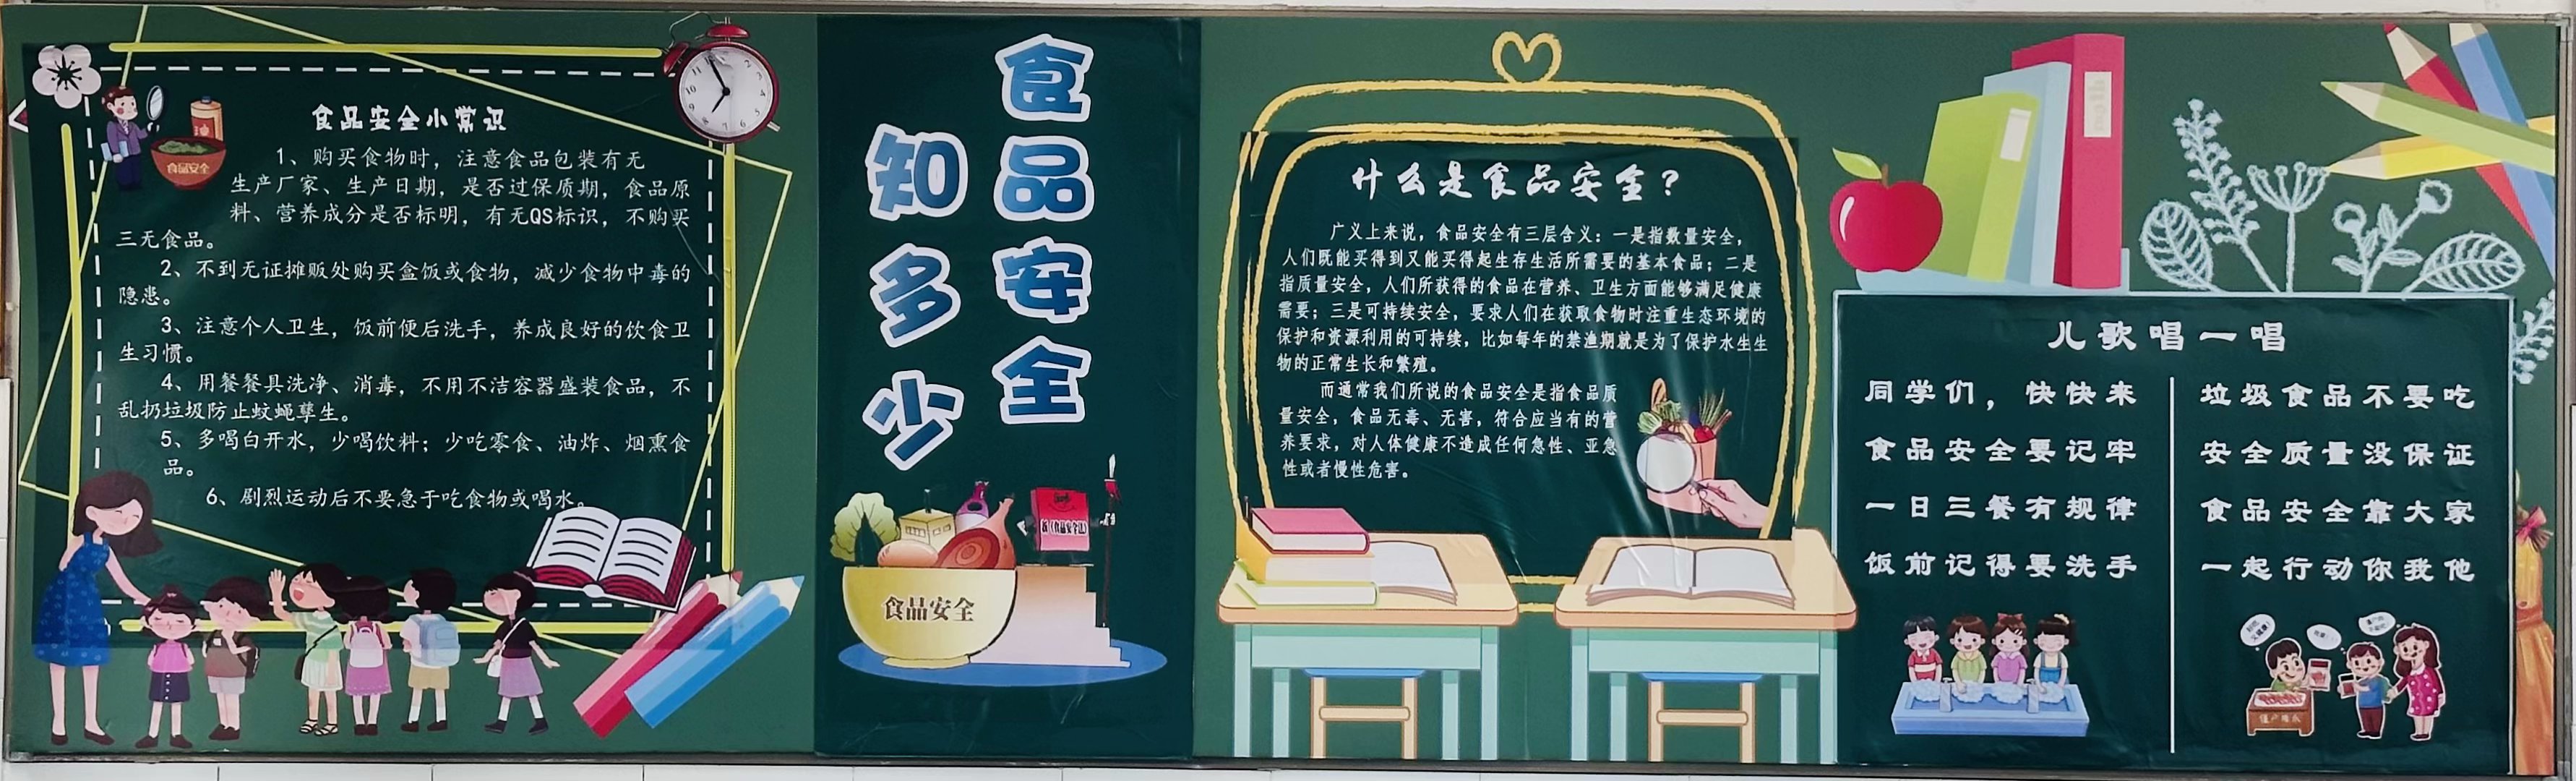 食品安全小常识
油
食品安全
1、购买食物时，注意食品包装有无
生产厂家、生产日期，是否过保质期，食品原
料、营养成分是否标明，有无QS标识，不购买
三无食品。
2、不到无证摊贩处购买盒饭或食物，减少食物中毒的
隐患。
3、注意个人卫生，饭前便后洗手，养成良好的饮食卫
生习惯。
4、用餐餐具洗净、消毒，不用不洁容器盛装食品，不
乱扔垃圾防止蚊蝇孳生。
5、多喝白开水，少喝饮料；少吃零食、油炸、烟熏食
品。
6、剧烈运动后不要急于吃食物或喝水。
食品安全
知多少
新《食品安全法》
食品安全
什么是食品安全？
广义上来说，食品安全有三层含义：一是指数量安全，
人们既能买得到又能买得起生存生活所需要的基本食品；二是
指质量安全，人们所获得的食品在营养、卫生方面能够满足健康
需要；三是可持续安全，要求人们在获取食物时注重生态环境的
保护和资源利用的可持续，比如每年的禁渔期就是为了保护水生生
物的正常生长和繁殖。
而通常我们所说的食品安全是指食品质
量安全，食品无毒、无害，符合应当有的营
养要求，对人体健康不造成任何急性、亚急
性或者慢性危害。
儿歌唱一唱
同学们，快快来
食品安全要记牢
一日三餐有规律
饭前记得要洗手
垃圾食品不要吃
安全质量没保证
食品安全靠大家
一起行动你我他